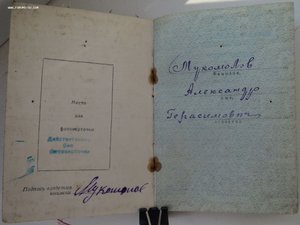 Место
для
фотокарточки
Действительно
без
фотокарточки
Подпись владельца
книжки Мукомолов
Мукомолов
Фамилия
Александр
имя
Герасимович
отчество